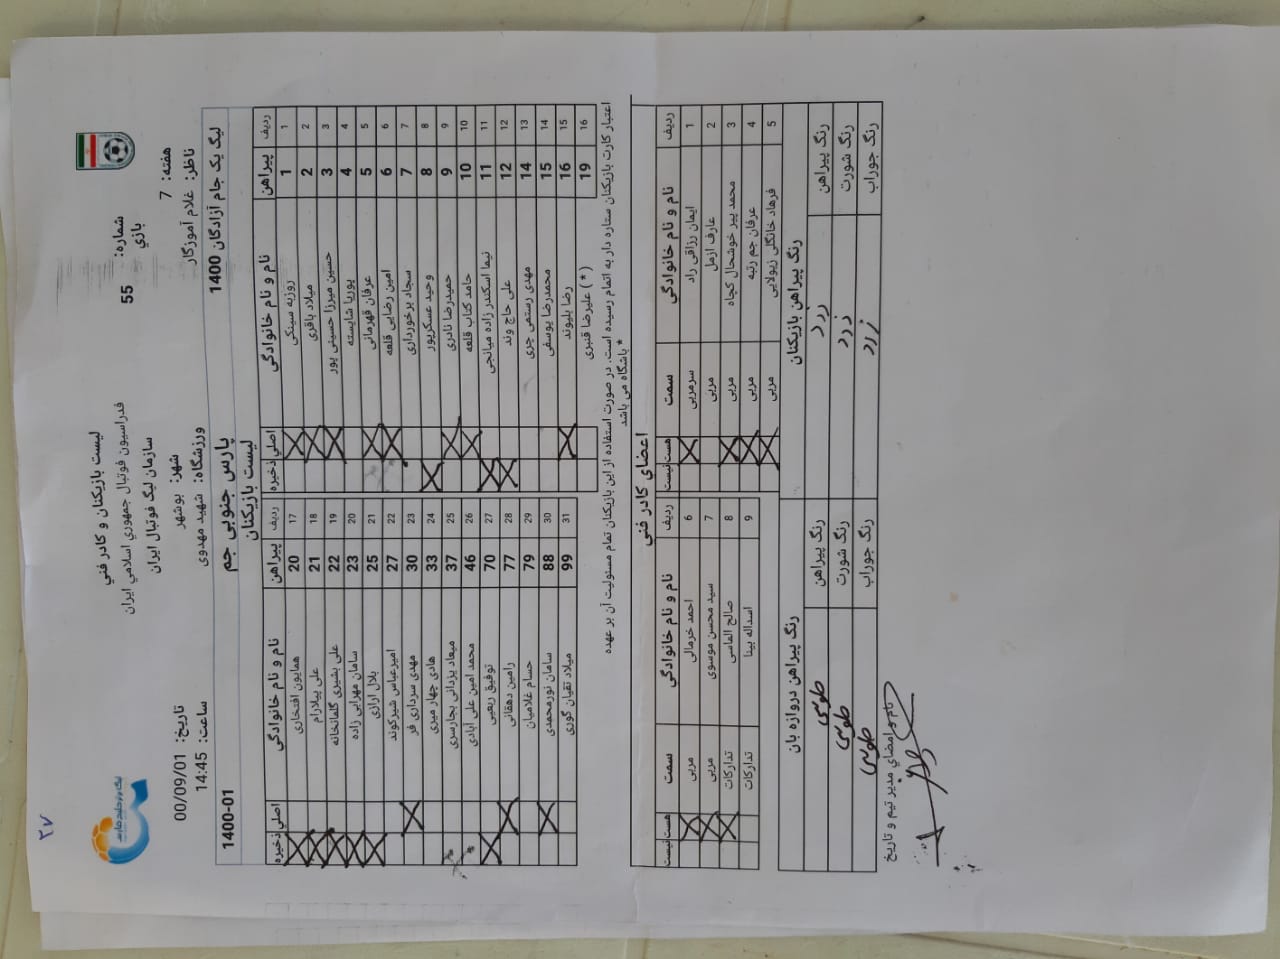 ۲۷
لیست بازیکنان و کادر فني
فدراسیون فوتبال جمهوري اسلامي ایران
سازمان لیگ فوتبال ایران
شماره: 55
بازي
تاریخ: 00/09/01
هفته: 7
شهر: بوشهر
ساعت: 14:45
ناظر: غلام آموزگار
ورزشگاه: شهید مهدوی
لیگ یک جام آزادگان 1400
پارس جنوبي جم
1400-01
لیست بازیکنان
ردیف پیراهن نام و نام خانوادگي اصلي ذخیره
1 1 روزبه سینکی
2 2 میلاد باقری
3 3 حسین میرزا حسینی پور
4 4 پوریا شایسته
5 5 عرفان قهرمانی
6 6 امین رضایی قلعه
7 7 سجاد برخورداری
8 8 وحید عسکرپور
9 9 حمیدرضا نادری
10 10 حامد کتاب قلعه
11 11 نیما اسکندر زاده میانجی
12 12 علی حاج وند
13 14 مهدی رستمی چری
14 15 محمدرضا یوسفی
15 16 رضا بلیوند
16 19 ( * ) علیرضا قنبری
ردیف پیراهن نام و نام خانوادگي اصلي ذخیره
17 20 همایون افتخاری
18 21 علی پیلارام
19 22 علی بشیری گلمانخانه
20 23 سامان مهرابی زاده
21 25 بلال ارازی
22 27 امیرعباس شیرکوند
23 30 مهدی سرداری فر
24 33 هادی چهار میری
25 37 میعاد یزدانی بجارسری
26 46 محمد امین علی آبادی
27 70 توفیق ربعی
28 77 رامین دهقانی
29 79 حسام غلامیان
30 88 سامان نورمحمدی
31 99 میلاد تقیان گوری
اعتبار کارت بازیکنان ستاره دار به اتمام رسیده است. در صورت استفاده از این بازیکنان تمام مسئولیت آن بر عهده
*باشگاه مي باشد
اعضاي کادر فني
ردیف نام و نام خانوادگي سمت هست نیست
1 ایمان رزاقی راد سرمربی
2 عارف ازمل مربی
3 محمد پیر خوشحال کجاه مربی
4 عرفان جم رتبه مربی
5 فرهاد خانگلی زیولایی مربی
ردیف نام و نام خانوادگي سمت هست نیست
6 احمد خرمالی مربی
7 سید محسن موسوی مربی
8 صالح الماسی تدارکات
9 اسداله بینا تدارکات
رنگ پیراهن بازیکنان
رنگ پیراهن زرد
رنگ شورت زرد
رنگ جوراب زرد
رنگ پیراهن دروازه بان
رنگ پیراهن طوسی
رنگ شورت طوسی
رنگ جوراب طوسی
نام و امضاي مدیر تیم و تاریخ